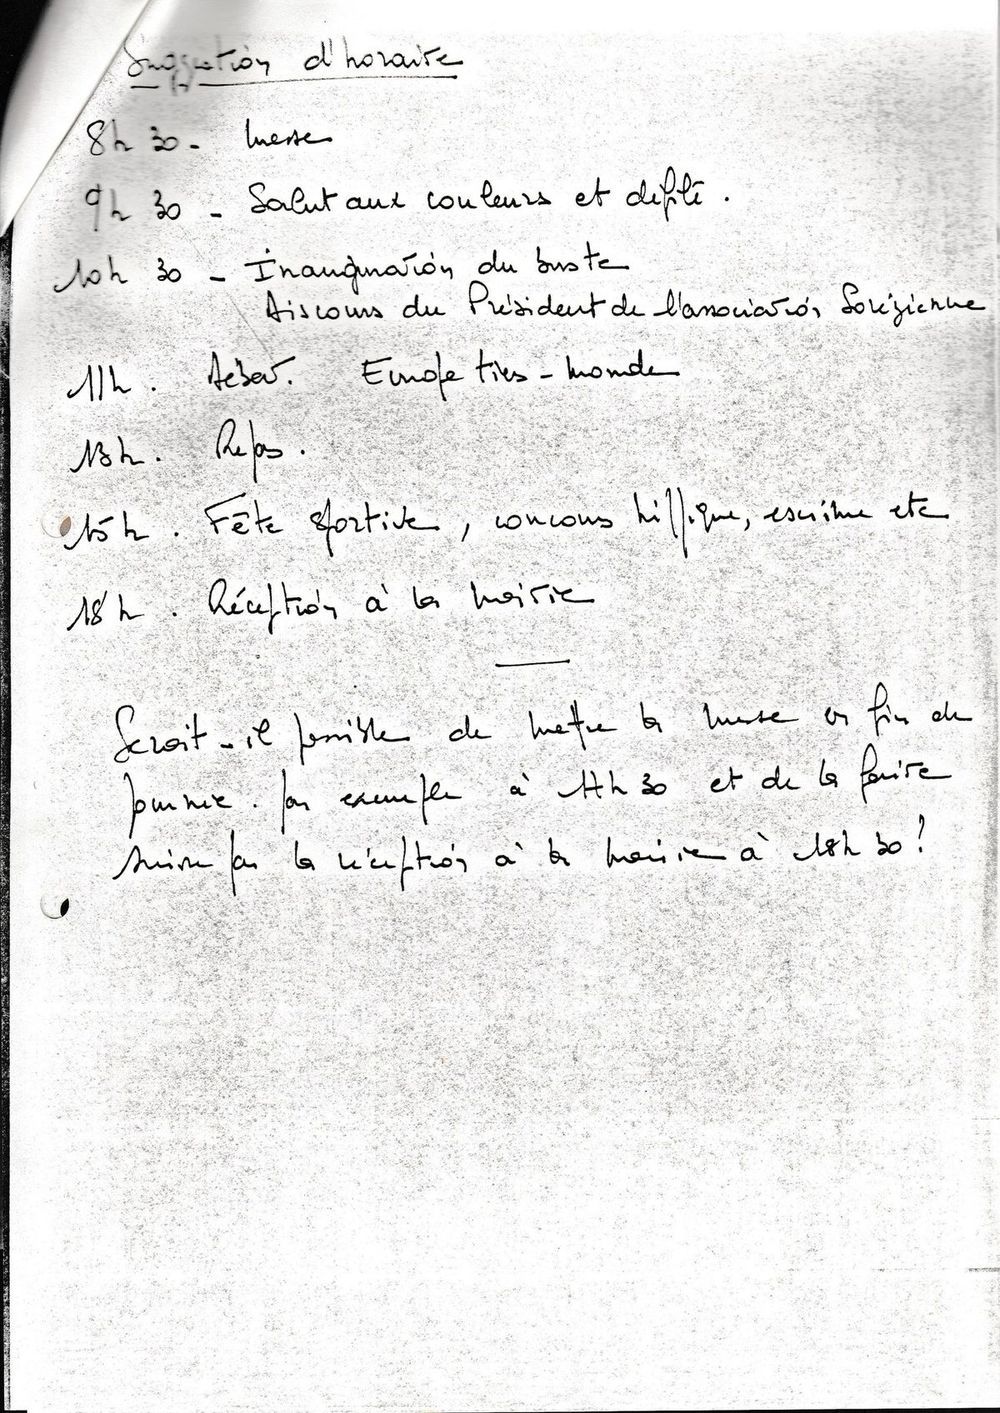 Suggestion d'horaire
8h 30 - Messe
9h 30 - Salut aux couleurs et défilé.
10h 30 - Inauguration du buste
Discours du Président de l'association Sorézienne
11h. Débat. Europe tiers-monde
13h. Repas.
15h. Fête sportive, concours hippique, escrime etc
18h. Réception à la mairie
Serait-il possible de mettre la messe en fin de
journée. par exemple à 17h30 et de la faire
suivre par la réception à la mairie à 18h30?